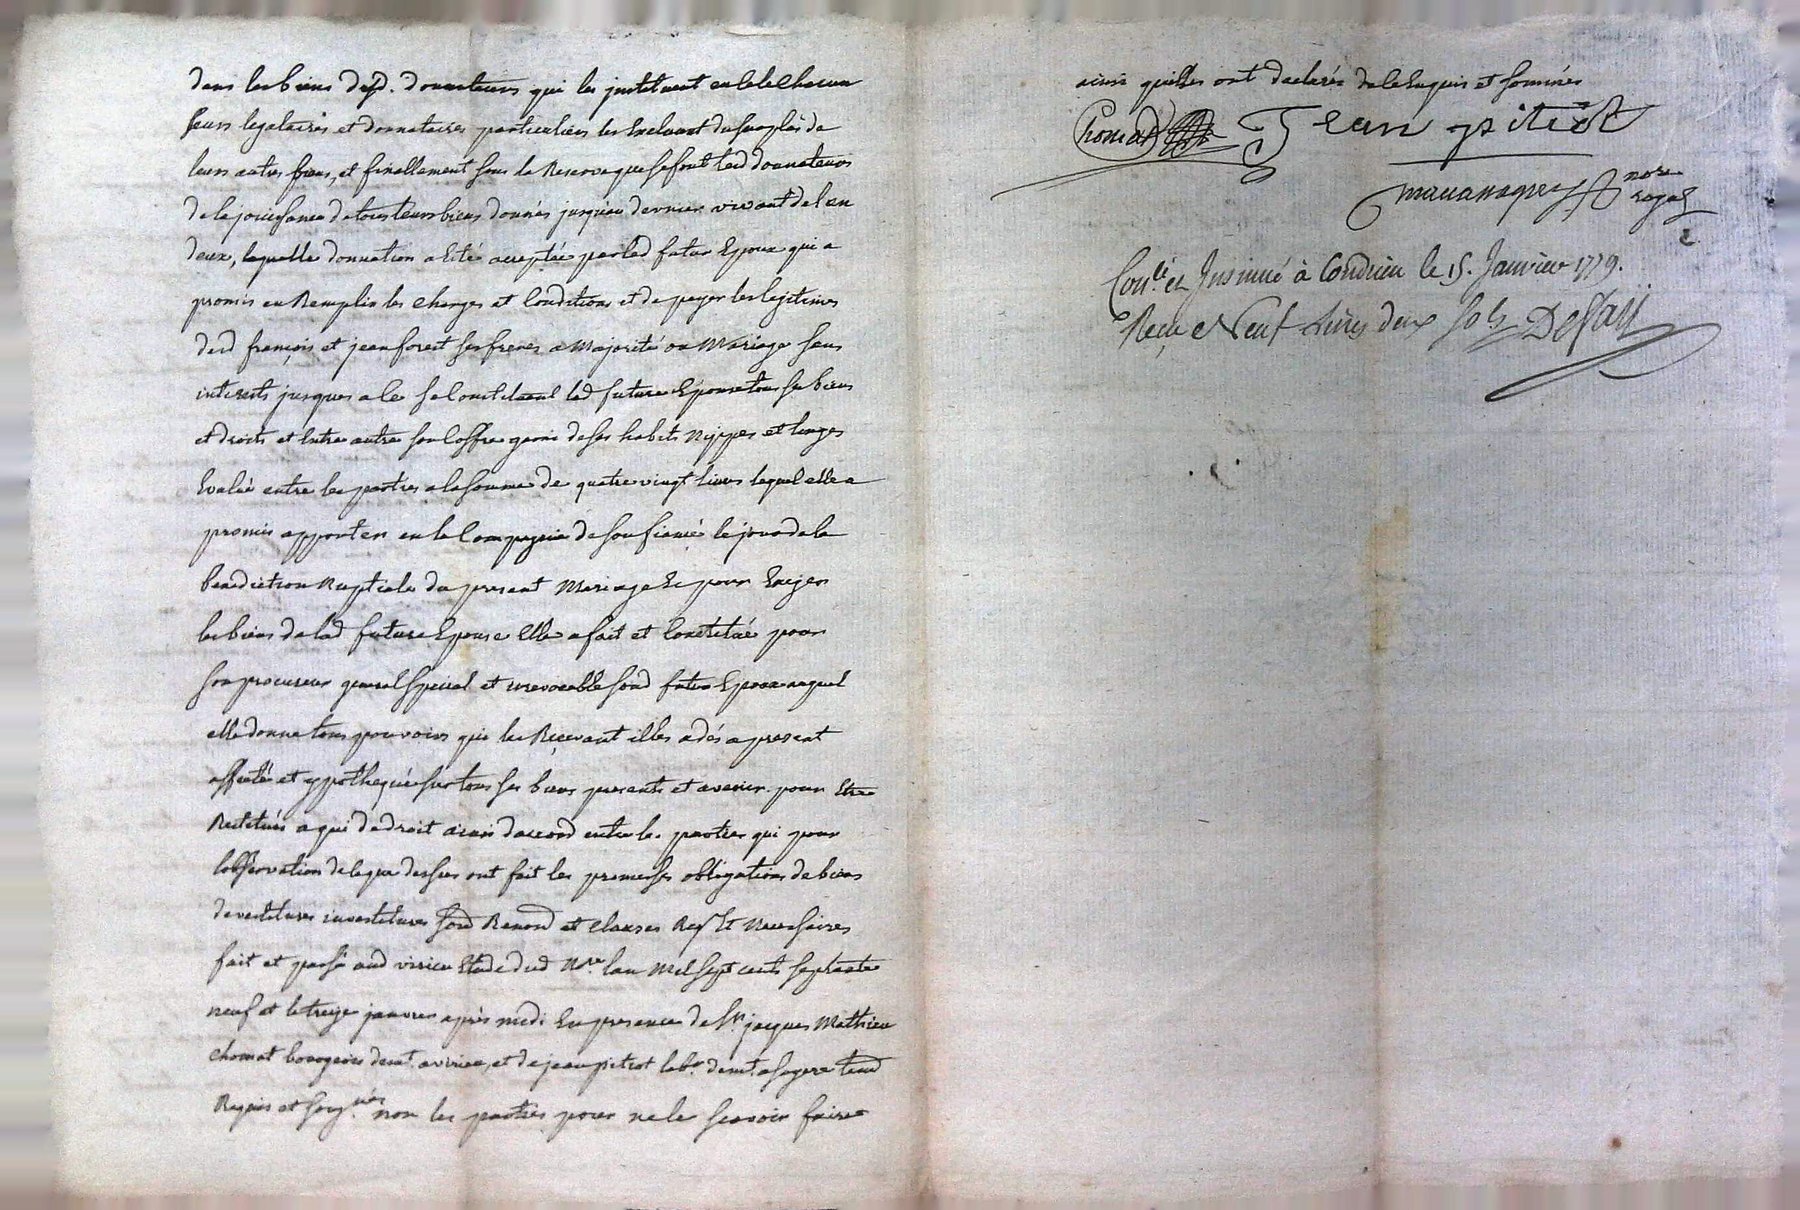 dans les biens desd. donnateurs qui les instituent en cela chacun
leurs legataires et donnataires particuliers les Excluant du surplus de
leurs autres biens, et finallement sous la Reserve que se font lesd donnateurs
de la jouissance de tous leurs biens donnés jusqu'au dernier vivant de l'un
deux, laquelle donnation a Eté acceptée par led futur Epoux qui a
promis en Remplir les charges et Conditions et de payer les legitimes
desd françois et jean forest ses freres a Majorité ou Mariage sans
interets jusques a le se Constituant lad future Epouse tous ses biens
et droits et Entre autre son Coffre garni de ses habits Nippes et linges
Evalué entre les parties a la somme de quatre vingt livres lequel elle a
promis apporter en la Compagnie de son fiancé le jour de la
benediction Nuptiale du present Mariage Et pour Exiger
les biens de lad future Epouse Elle a fait et Constitué pour
son procureur general special et irrevocable sond futur Epoux auquel
elle donne tous pouvoirs que les Recevant illes a dés a present
affecté et ypothequé sur tous ses biens presents et avenir pour Etre
Restitués a qui de droit ainsi daccord entre les parties qui pour
lobservation de ce que dessus ont fait les promesses obligations de biens
devestitures investitures sous Renond et clauses Req.t Et Necessaires
fait et passé aud virieu Etude dud No.re lan Mil sept cents septante
neuf et le treize janvier après midi En presence de S.r jacques Mathieu
chomat bourgeois demt. a virieu, et de jean pitiot lab.r demt a segere temd
Requis et soug.nés non les parties pour ne le scavoir faire
ainsi quelles ont declarés de ce Enquis et sommées
Chomat Jean pitiot
no.re
royal
Con.lé et Insinué à Condrieu le 15. Janvier 1779.
Reçu Neuf Livres deux sols